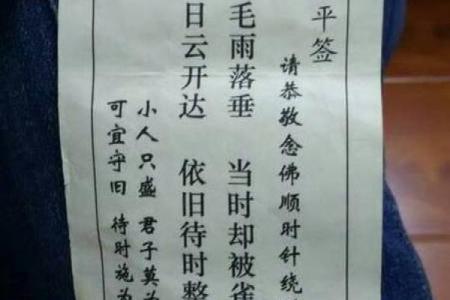 平签
请恭敬念佛顺时针绕
毛雨落垂 当时却被雀
日云开达 依旧待时整
小人只盛 君子莫
可宜守旧 待时施为